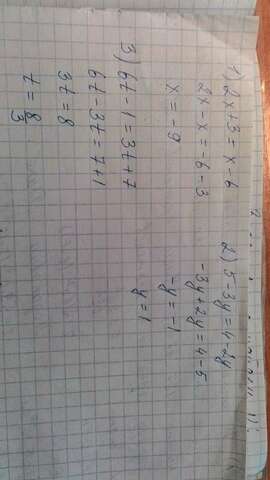 1) 2x+3=x-6
2x-x=-6-3
x=-9
2) 5-3y=4-2y
-3y+2y=4-5
-y=-1
y=1
3) 6t-1=3t+7
6t-3t=7+1
3t=8
t=8/3